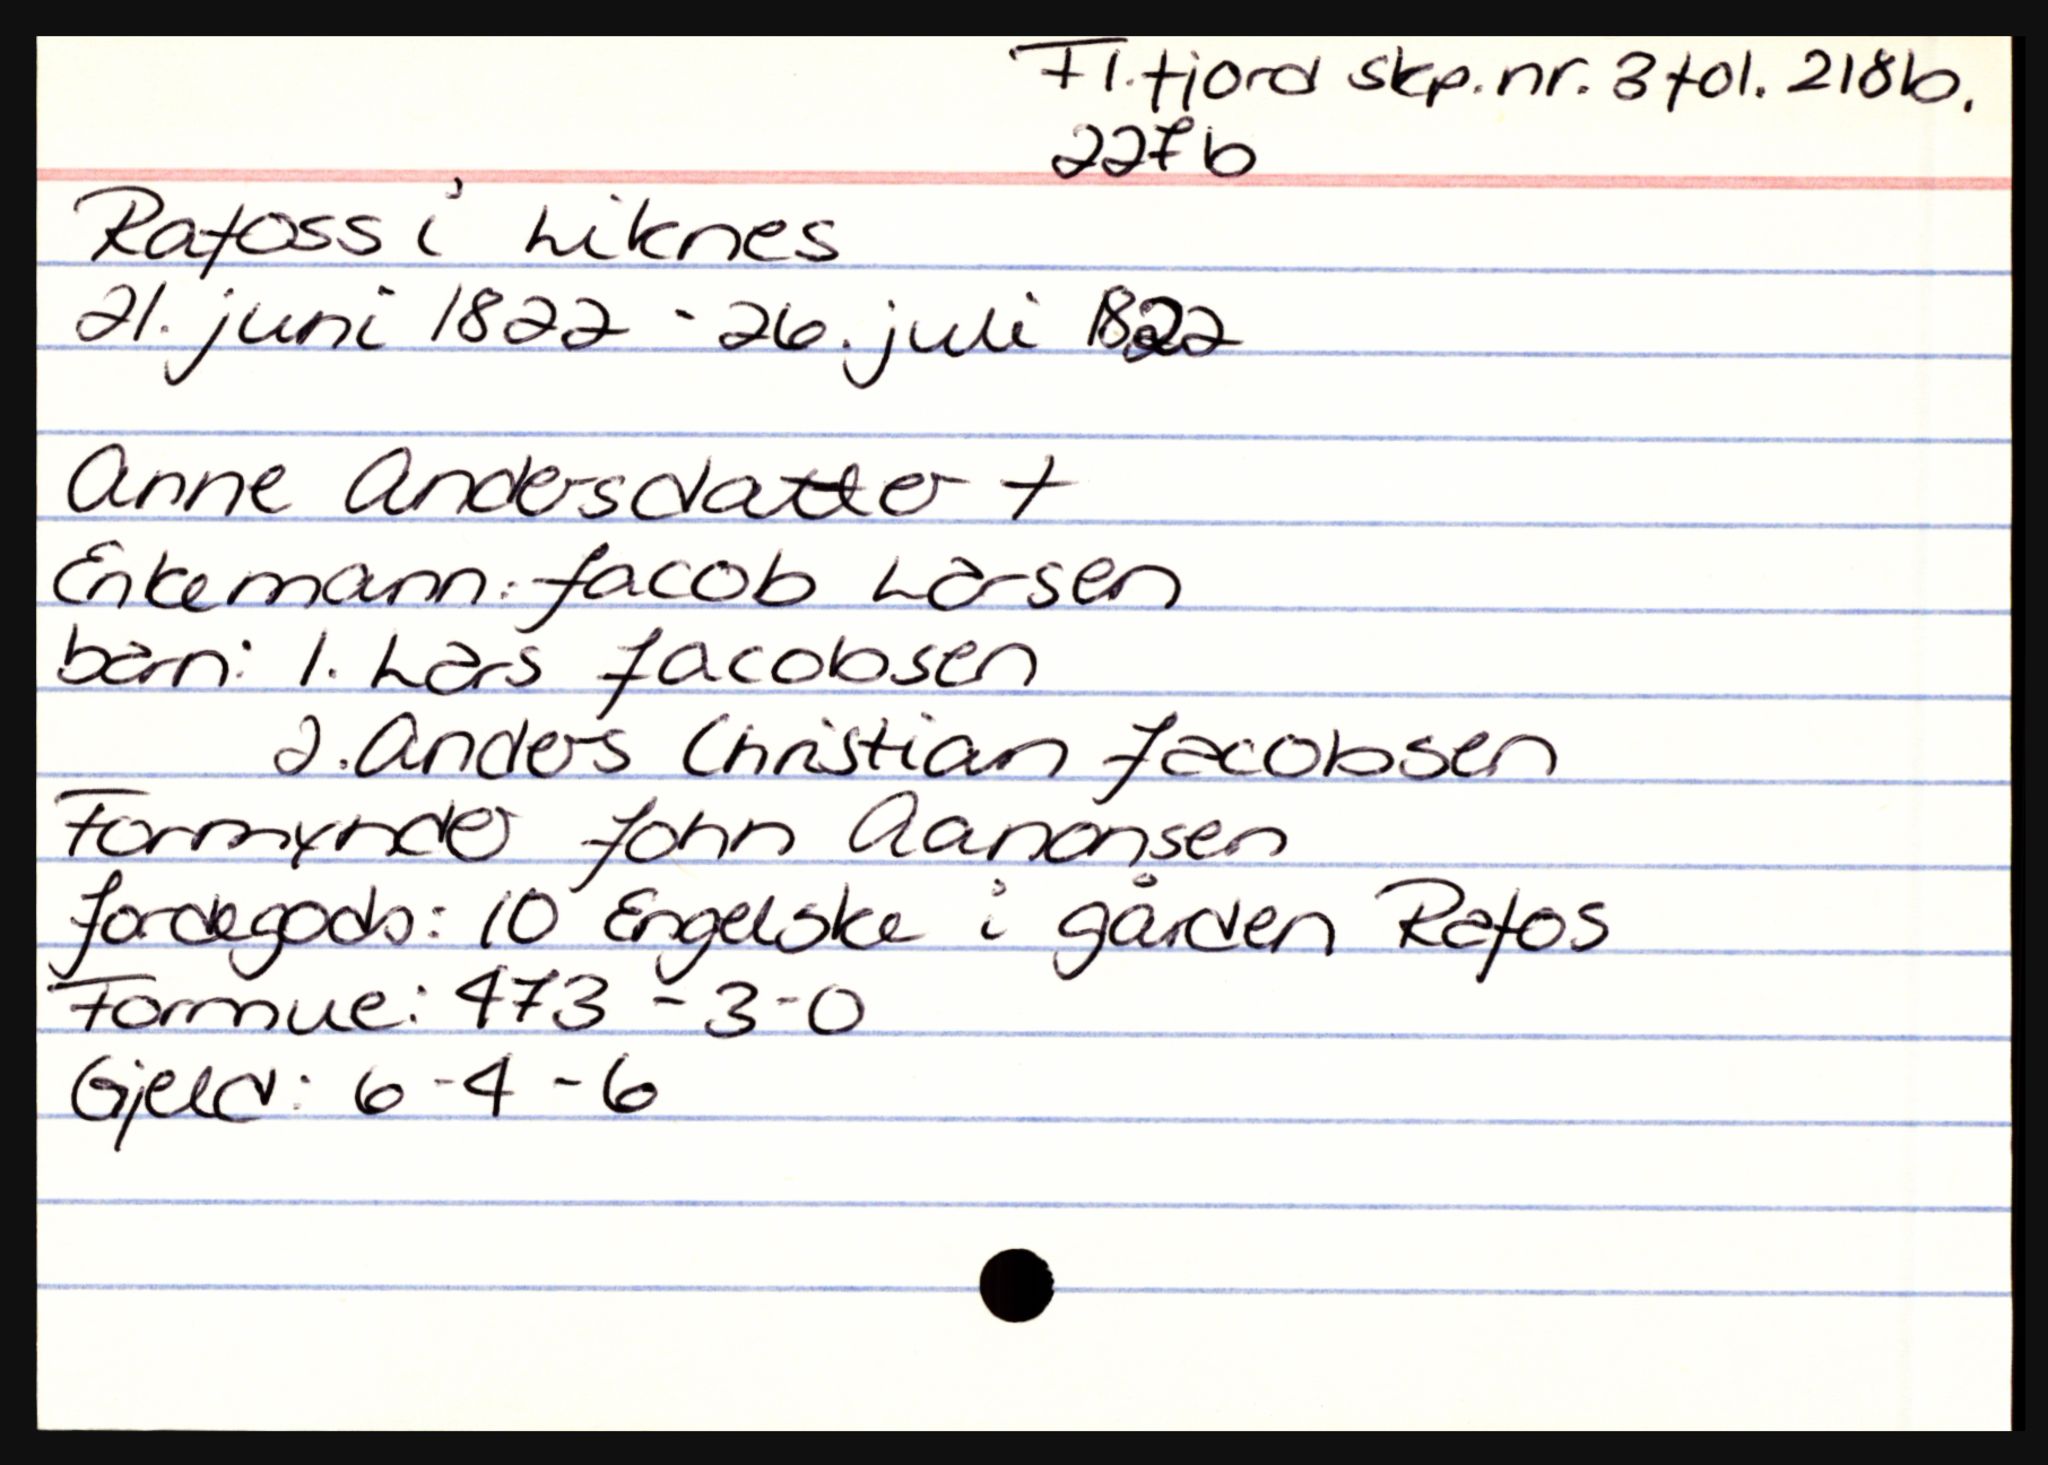 Fl.fjord skp.nr. 3 fol. 218b.
227b
Rafoss i Liknes
21. juni 1822 - 26. juli 1822
Anne Andersdatter +
Enkemann: Jacob Larsen
barn: 1. Lars Jacobsen
2. Anders Christian Jacobsen
Formynder John Aanonsen
Jordegods: 10 Engelske i gården Rafos
Formue: 473 - 3 - 0
Gjeld: 6 - 4 - 6